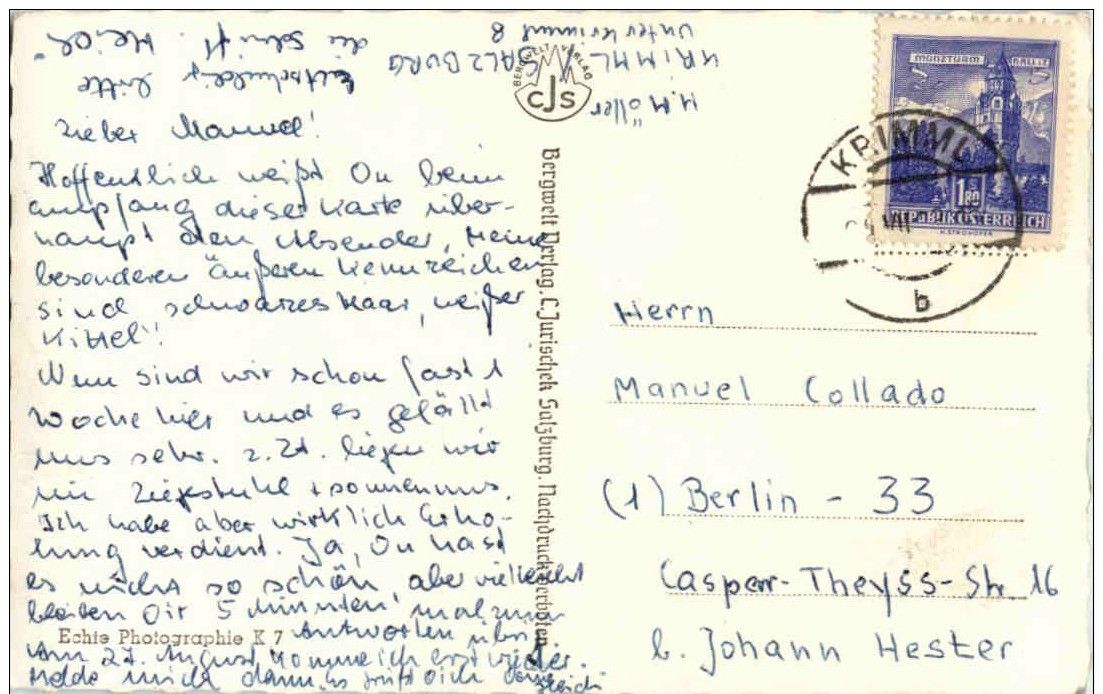 H. Möller
KRIMML / SALZBURG
Unterkrimml 8
Entschuldige bitte
die Schrift. Heidi
BERGWELT VERLAG
CJS
Lieber Manuel!
Hoffentlich weißt Du beim
Empfang dieser Karte über-
haupt den Absender, Meine
besonderen äußeren Kennzeichen
sind schwarzes Haar, weißer
Kittel!
Nun sind wir schon fast 1
Woche hier und es gefällt
uns sehr. z. Zt. liegen wir
im Liegestuhl + sonnen uns.
Ich habe aber wirklich Erho-
lung verdient. Ja, Du hast
es nicht so schön, aber vielleicht
bleiben Dir 5 Minuten mal zum
Antworten übrig
Am 27. August komme ich erst wieder.
Melde mich dann, es grüßt Dich
Echte Photographie K 7
Bergwelt Verlag, C. Jurischek Salzburg. Nachdruck verboten
MÜNZTURM HALL i.T.
1.80
REPUBLIK ÖSTERREICH
KRIMML
VII
b
Herrn
Manuel Collado
(1) Berlin - 33
Caspar-Theyss-Str. 16
b. Johann Hester